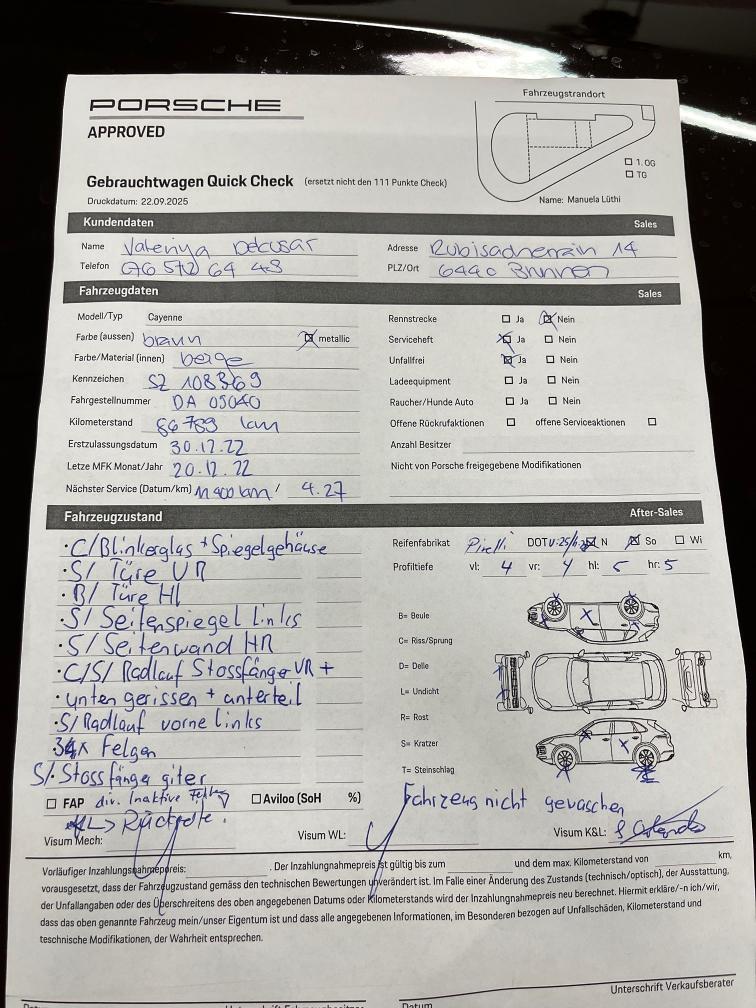 PORSCHE
APPROVED
Fahrzeugstrandort
1. OG
TG
Gebrauchtwagen Quick Check (ersetzt nicht den 111 Punkte Check)
Druckdatum: 22.09.2025
Name: Manuela Lüthi
Kundendaten Sales
Name Valeriya Adresse 14
Telefon 076 572 64 48 PLZ/Ort 6440 Brunnen
Fahrzeugdaten Sales
Modell/Typ Cayenne Rennstrecke Ja Nein
Farbe (aussen) braun metallic Serviceheft Ja Nein
Farbe/Material (innen) beige Unfallfrei Ja Nein
Kennzeichen SZ Ladeequipment Ja Nein
Fahrgestellnummer DA 05040 Raucher/Hunde Auto Ja Nein
Kilometerstand 86789 km Offene Rückrufaktionen offene Serviceaktionen
Erstzulassungsdatum 30.12.22 Anzahl Besitzer
Letze MFK Monat/Jahr 20.12.22 Nicht von Porsche freigegebene Modifikationen
Nächster Service (Datum/km) 11900 km / 4.27
Fahrzeugzustand After-Sales
· C/Blinkerglas + Spiegelgehäuse Reifenfabrikat Pirelli DOT N So Wi
· S/ Türe VR Profiltiefe vl: 4 vr: 4 hl: 5 hr: 5
· B/ Türe Hl B= Beule
· S/ Seitenspiegel links C= Riss/Sprung
· S/ Seitenwand HR
· C/S/ Radlauf Stossfänge VR + D= Delle
· unten gerissen + anterteil L= Undicht
· S/Radlauf vorne links R= Rost
Felgen S= Kratzer
S/· Stossfänga giter T= Steinschlag
FAP div. Inaktive Aviloo (SoH %) Fahrzeug nicht gewaschen
Visum Mech: Visum WL: Visum K&L:
Vorläufiger Inzahlungsnahmepreis: . Der Inzahlungnahmepreis ist gültig bis zum und dem max. Kilometerstand von km,
vorausgesetzt, dass der Fahrzeugzustand gemäss den technischen Bewertungen unverändert ist. Im Falle einer Änderung des Zustands (technisch/optisch), der Ausstattung,
der Unfallangaben oder des Überschreitens des oben angegebenen Datums oder Kilometerstands wird der Inzahlungnahmepreis neu berechnet. Hiermit erkläre/-n ich/wir,
dass das oben genannte Fahrzeug mein/unser Eigentum ist und dass alle angegebenen Informationen, im Besonderen bezogen auf Unfallschäden, Kilometerstand und
teschnische Modifikationen, der Wahrheit entsprechen.
Datum
Unterschrift Verkaufsberater